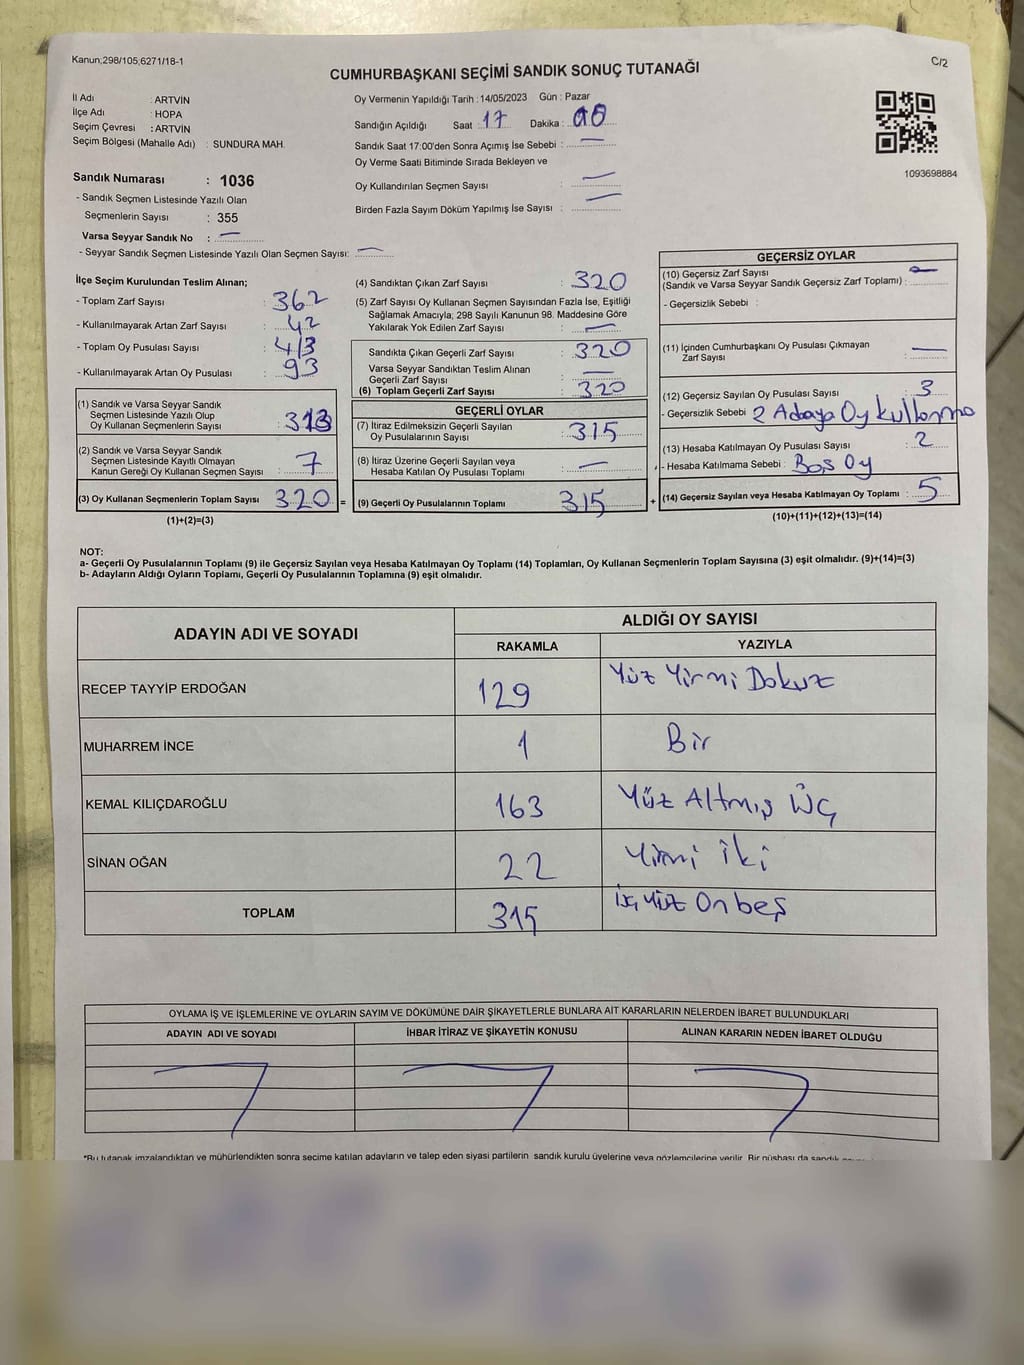 Kanun;298/105,6271/18-1
C/2
CUMHURBAŞKANI SEÇİMİ SANDIK SONUÇ TUTANAĞI
İl Adı : ARTVİN
İlçe Adı : HOPA
Seçim Çevresi : ARTVİN
Seçim Bölgesi (Mahalle Adı) : SUNDURA MAH.
Oy Vermenin Yapıldığı Tarih :14/05/2023 Gün : Pazar
Sandığın Açıldığı Saat : 17 Dakika :
Sandık Saat 17:00'den Sonra Açımış İse Sebebi : —
Oy Verme Saati Bitiminde Sırada Bekleyen ve
Oy Kullandırılan Seçmen Sayısı : —
Birden Fazla Sayım Döküm Yapılmış İse Sayısı : —
1093698884
Sandık Numarası : 1036
- Sandık Seçmen Listesinde Yazılı Olan
Seçmenlerin Sayısı : 355
Varsa Seyyar Sandık No : —
- Seyyar Sandık Seçmen Listesinde Yazılı Olan Seçmen Sayısı: —
İlçe Seçim Kurulundan Teslim Alınan;
- Toplam Zarf Sayısı : 362
- Kullanılmayarak Artan Zarf Sayısı : 42
- Toplam Oy Pusulası Sayısı : 413
- Kullanılmayarak Artan Oy Pusulası : 93
(1) Sandık ve Varsa Seyyar Sandık
Seçmen Listesinde Yazılı Olup
Oy Kullanan Seçmenlerin Sayısı : 313
(2) Sandık ve Varsa Seyyar Sandık
Seçmen Listesinde Kayıtlı Olmayan
Kanun Gereği Oy Kullanan Seçmen Sayısı : 7
(3) Oy Kullanan Seçmenlerin Toplam Sayısı : 320 =
(1)+(2)=(3)
(4) Sandıktan Çıkan Zarf Sayısı : 320
(5) Zarf Sayısı Oy Kullanan Seçmen Sayısından Fazla İse, Eşitliği
Sağlamak Amacıyla; 298 Sayılı Kanunun 98. Maddesine Göre
Yakılarak Yok Edilen Zarf Sayısı : —
Sandıkta Çıkan Geçerli Zarf Sayısı : 320
Varsa Seyyar Sandıktan Teslim Alınan
Geçerli Zarf Sayısı : —
(6) Toplam Geçerli Zarf Sayısı : 320
GEÇERLİ OYLAR
(7) İtiraz Edilmeksizin Geçerli Sayılan
Oy Pusulalarının Sayısı : 315
(8) İtiraz Üzerine Geçerli Sayılan veya
Hesaba Katılan Oy Pusulası Toplamı : —
(9) Geçerli Oy Pusulalarının Toplamı : 315 +
GEÇERSİZ OYLAR
(10) Geçersiz Zarf Sayısı
(Sandık ve Varsa Seyyar Sandık Geçersiz Zarf Toplamı) : —
- Geçersizlik Sebebi :
(11) İçinden Cumhurbaşkanı Oy Pusulası Çıkmayan
Zarf Sayısı : —
(12) Geçersiz Sayılan Oy Pusulası Sayısı : 3
- Geçersizlik Sebebi : 2 Adaya Oy kullanma
(13) Hesaba Katılmayan Oy Pusulası Sayısı : 2
- Hesaba Katılmama Sebebi : Boş Oy
(14) Geçersiz Sayılan veya Hesaba Katılmayan Oy Toplamı : 5
(10)+(11)+(12)+(13)=(14)
NOT:
a- Geçerli Oy Pusulalarının Toplamı (9) ile Geçersiz Sayılan veya Hesaba Katılmayan Oy Toplamı (14) Toplamları, Oy Kullanan Seçmenlerin Toplam Sayısına (3) eşit olmalıdır. (9)+(14)=(3)
b- Adayların Aldığı Oyların Toplamı, Geçerli Oy Pusulalarının Toplamına (9) eşit olmalıdır.
ADAYIN ADI VE SOYADI
ALDIĞI OY SAYISI
RAKAMLA YAZIYLA
RECEP TAYYİP ERDOĞAN 129 Yüz Yirmi Dokuz
MUHARREM İNCE 1 Bir
KEMAL KILIÇDAROĞLU 163 Yüz Altmış Üç
SİNAN OĞAN 22 Yirmi iki
TOPLAM 315 Üç Yüz Onbeş
OYLAMA İŞ VE İŞLEMLERİNE VE OYLARIN SAYIM VE DÖKÜMÜNE DAİR ŞİKAYETLERLE BUNLARA AİT KARARLARIN NELERDEN İBARET BULUNDUKLARI
ADAYIN ADI VE SOYADI İHBAR İTİRAZ VE ŞİKAYETİN KONUSU ALINAN KARARIN NEDEN İBARET OLDUĞU
*Bu tutanak imzalandıktan ve mühürlendikten sonra seçime katılan adayların ve talep eden siyasi partilerin sandık kurulu üyelerine veya gözlemcilerine verilir. Bir nüshası da sandık